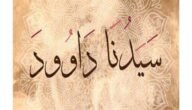 سَيِّدُنَا دَاوُودَ